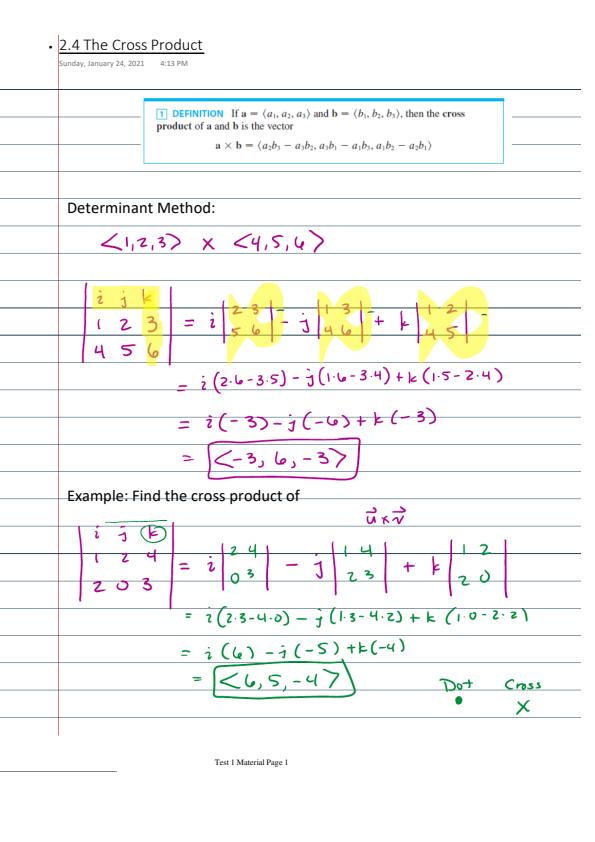 • 2.4 The Cross Product
Sunday, January 24, 2021 4:13 PM
1 DEFINITION If a = ⟨a₁, a₂, a₃⟩ and b = ⟨b₁, b₂, b₃⟩, then the cross
product of a and b is the vector
a × b = ⟨a₂b₃ − a₃b₂, a₃b₁ − a₁b₃, a₁b₂ − a₂b₁⟩
Determinant Method:
<1,2,3> x <4,5,6>
|i j k|
|1 2 3| = i |2 3; 5 6| - j |1 3; 4 6| + k |1 2; 4 5|
|4 5 6|
= i(2·6-3·5) - j(1·6-3·4) + k(1·5-2·4)
= i(-3) - j(-6) + k(-3)
= <-3, 6, -3>
Example: Find the cross product of
u⃗ x v⃗
|i j k|
|1 2 4| = i |2 4; 0 3| - j |1 4; 2 3| + k |1 2; 2 0|
|2 0 3|
= i(2·3-4·0) - j(1·3-4·2) + k(1·0-2·2)
= i(6) - j(-5) + k(-4)
= <6, 5, -4>
Dot Cross
• X
Test 1 Material Page 1